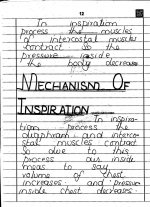 12
In inspiration
process the muscles
of intercostal muscles
contract so the
pressure inside
the body decrease
MECHANISM OF
INSPIRATION
In inspira-
tion process the
diaphram and interco-
stal muscles contract
so due to this
process our inside
mass to say
volume of chest
increases and pressure
inside chest decreases.